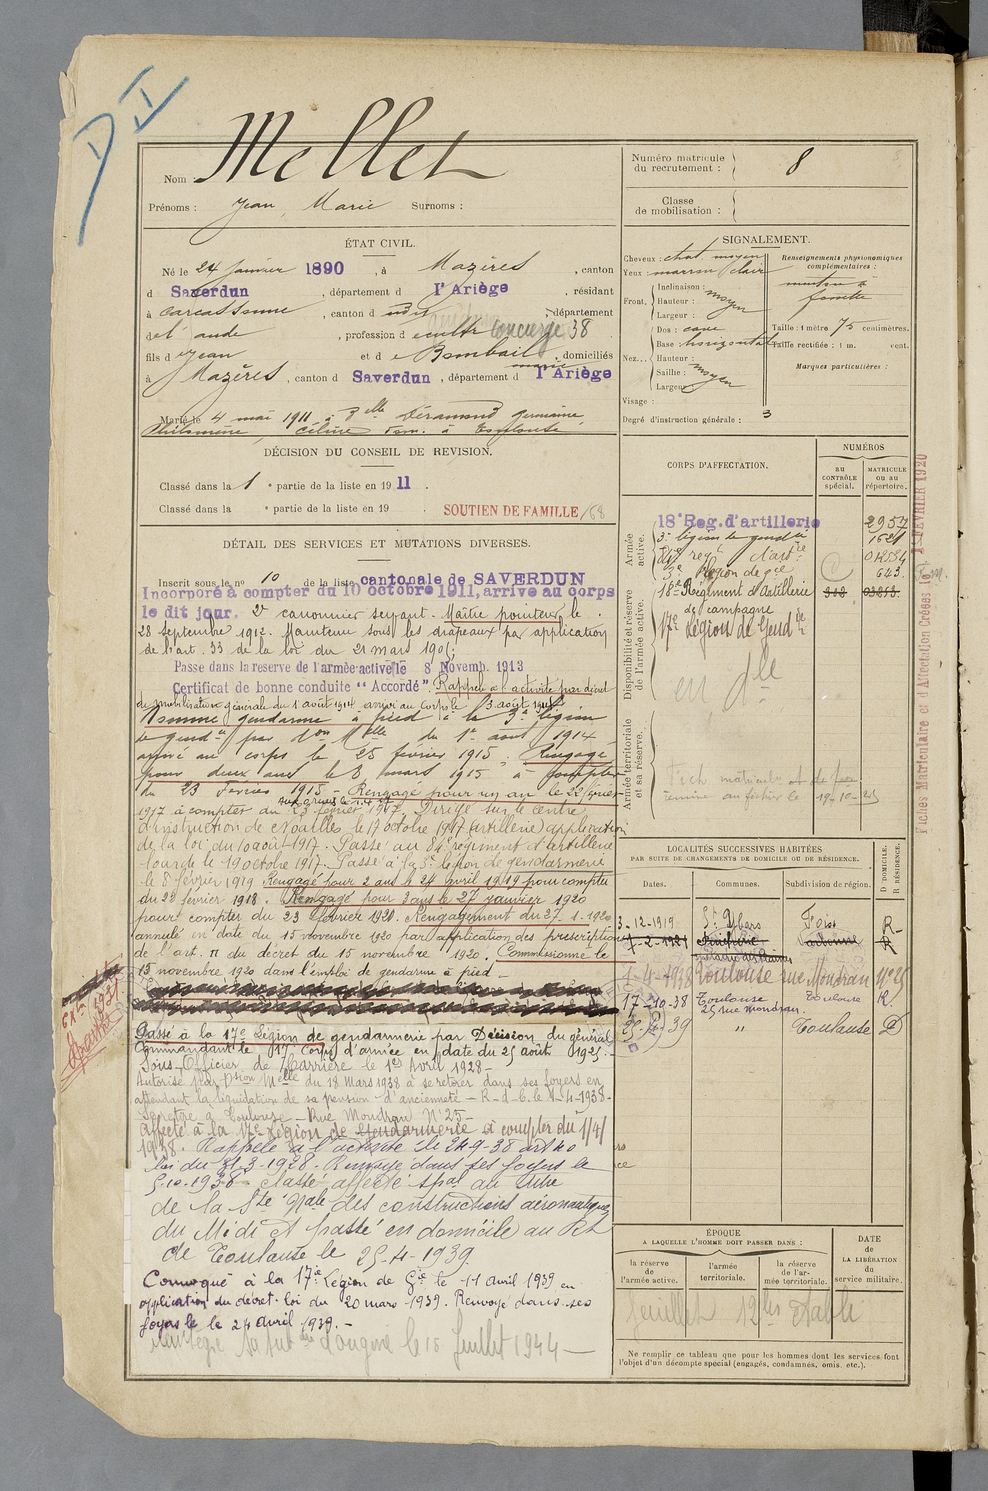 D I
Nom Mellet
Prénoms : Jean, Marie Surnoms :
ÉTAT CIVIL.
Né le 24 janvier 1890, à Mazères, canton
d Saverdun, département d l'Ariège, résidant
à Carcassonne, canton d udit, département
de l'aude, profession d concierge 38
fils d e Jean et d e Bombail, domiciliés
à Mazères, canton d Saverdun, département d l'Ariège
Marié le 4 mai 1911 à Delle Déramond Germaine
Philomène, Céline dom. à Toulouse
DÉCISION DU CONSEIL DE REVISION.
Classé dans la 1 e partie de la liste en 19 11.
Classé dans la e partie de la liste en 19 SOUTIEN DE FAMILLE /68
DÉTAIL DES SERVICES ET MUTATIONS DIVERSES.
Inscrit sous le no 10 de la liste cantonale de SAVERDUN
Incorporé à compter du 10 octobre 1911, arrivé au corps
le dit jour. 2e canonnier servant. Maître pointeur le
28 septembre 1912. Maintenu sous les drapeaux par application
de l'art. 33 de la loi du 21 mars 1905;
Passé dans la reserve de l'armée active le 8 Novemb. 1913
Certificat de bonne conduite "Accordé". Rappelé à l'activité par décret
de mobilisation générale du 1 août 1914 arrivé au corps le 3 août 1914
Nommé gendarme à pied à la 3e légion
de gendie par don Mlle du 1er août 1914
arrivé au corps le 25 février 1915. Rengagé
pour deux ans le 3 mars 1915 à compter
du 23 Février 1915 - Rengagé pour un an le 22 février
1917 à compter du 23 février 1917. Dirigé sur le centre
d'instruction de Noailles le 17 octobre 1917 (artillerie) application
de la loi du 10 août 1917. Passé au 84e régiment d'artillerie
lourde le 19 octobre 1917. Passé à la 3e légion de gendarmerie
le 8 février 1919 Rengagé pour 2 ans le 24 avril 1919 pour compter
du 23 février 1918. Rengagé pour 3 ans le 27 janvier 1920
pour compter du 23 février 1920. Rengagement du 27.1.1920
annulé en date du 15 novembre 1920 par application des prescriptions
de l'art. 11 du décret du 15 novembre 1920. Commissionné le
15 novembre 1920 dans l'emploi de gendarme à pied -
Passé à la 17e Légion de gendarmerie par Décision du général
Commandant le 17e Corps d'armée en date du 25 août 1925.
Sous-Officier de Carrière le 1er Avril 1928 -
Autorisé par Dsion Melle du 18 Mars 1938 à se retirer dans ses foyers en
attendant la liquidation de sa pension d'ancienneté - R-d-C. le 1-4-1938-
Se retire à Toulouse - Rue Mondran N° 25 -
Affecté à la 17e Légion de Gendarmerie à compter du 1/4/
1938. Rappelé à l'activité le 24-9-38 art 40
loi du 31-3-1928. Renvoyé dans ses foyers le
5-10-1938. Classé affecté spal au titre
de la Sté Nale des constructions aéronautiques
du Midi et passé en domicile au Rt
de Toulouse le 25-4-1939.
Convoqué à la 17e Légion de Gie le 11 avril 1939 en
application du décret-loi du 20 mars 1939. Renvoyé dans ses
foyers le 24 avril 1939. -
d'origine le 15 Juillet 1944 -
Numéro matricule du recrutement : 8
Classe de mobilisation :
SIGNALEMENT.
Cheveux : chat. moyen
Yeux : marron clair
Front. Inclinaison : moyen
Hauteur :
Largeur :
Nez... Dos : cave
Base : horizontale
Hauteur :
Saillie : moyen
Largeur
Visage :
Renseignements physionomiques complémentaires :
menton à
fossette
Taille : 1 mètre 75 centimètres.
Taille rectifiée : 1 m. cent.
Marques particulières :
Degré d'instruction générale : 3
CORPS D'AFFECTATION.
NUMÉROS
au CONTRÔLE spécial.
MATRICULE ou au répertoire.
Armée active.
18e Reg. d'artillerie 2957
3e légion de gend ie 1621
84e regt d'artie
3e Légion de gie 643
Disponibilité et réserve de l'armée active.
18e Régiment d'Artillerie
de campagne
17e Légion de Gendie
Armée territoriale et sa réserve.
19-10-25
Fiches Matriculaire et d'Affectation Créées le 1 FEVRIER 1920
LOCALITÉS SUCCESSIVES HABITÉES
PAR SUITE DE CHANGEMENTS DE DOMICILE OU DE RÉSIDENCE.
Dates. Communes. Subdivision de région. D DOMICILE. R RÉSIDENCE.
3-12-1919 St Ybars Foix R-
7-2-1921 Narbonne R
1-4-1938 Toulouse rue Mondran N° 25
17-10-38 Toulouse Toulouse R.
25 rue Mondran
25-4-39 " Toulouse D
ÉPOQUE
A LAQUELLE L'HOMME DOIT PASSER DANS :
la réserve de l'armée active.
l'armée territoriale.
la réserve de l'armée territoriale.
DATE DE LA LIBÉRATION du service militaire.
feuillet 12bis établi
Ne remplir ce tableau que pour les hommes dont les services font
l'objet d'un décompte spécial (engagés, condamnés, omis, etc.).